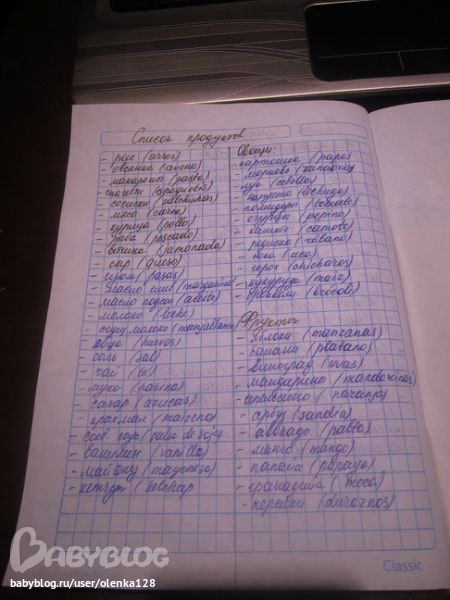 Список продуктов
- рис (arroz)
- овсянка (avena)
- макароны (pasta)
- спагетти (spaguetti)
- сосиски (salchichas)
- мясо (carne)
- курица (pollo)
- рыба (pescado)
- ветчина (jamonada)
- сыр (queso)
- изюм (pasas)
- масло слив (margarina)
- масло подсол (aceite)
- молоко (leche)
- сгущ. молоко (manjarblanco)
- яйцо (huevos)
- соль (sal)
- чай (té)
- мука (harina)
- сахар (azucar)
- крахмал (maizena)
- соев. соус (salsa de soja)
- ванилин (vanilla)
- майонез (mayonesa)
- кетчуп (ketchap
Овощи:
- картошка (papa)
- морковь (zanaoria)
- лук (cebolla)
- капуста (lechuga)
- помидоры (tomate)
- огурцы (pepino)
- (camote)
- редиска (rabano)
- юка (uca)
- горох (chicharos)
- кукуруза (maiz)
- брокколи (brócoli)
Фрукты
- яблоки (manzanas)
- бананы (platano)
- виноград (uvas)
- мандарины (mandarinas)
- апельсины (naranja)
- арбуз (sandia)
- авокадо (palta)
- манго (mango)
- папайа (papaya)
- гранадийа (
- персики (duroznos)
BABYBLOG
babyblog.ru/user/olenka128
Classic